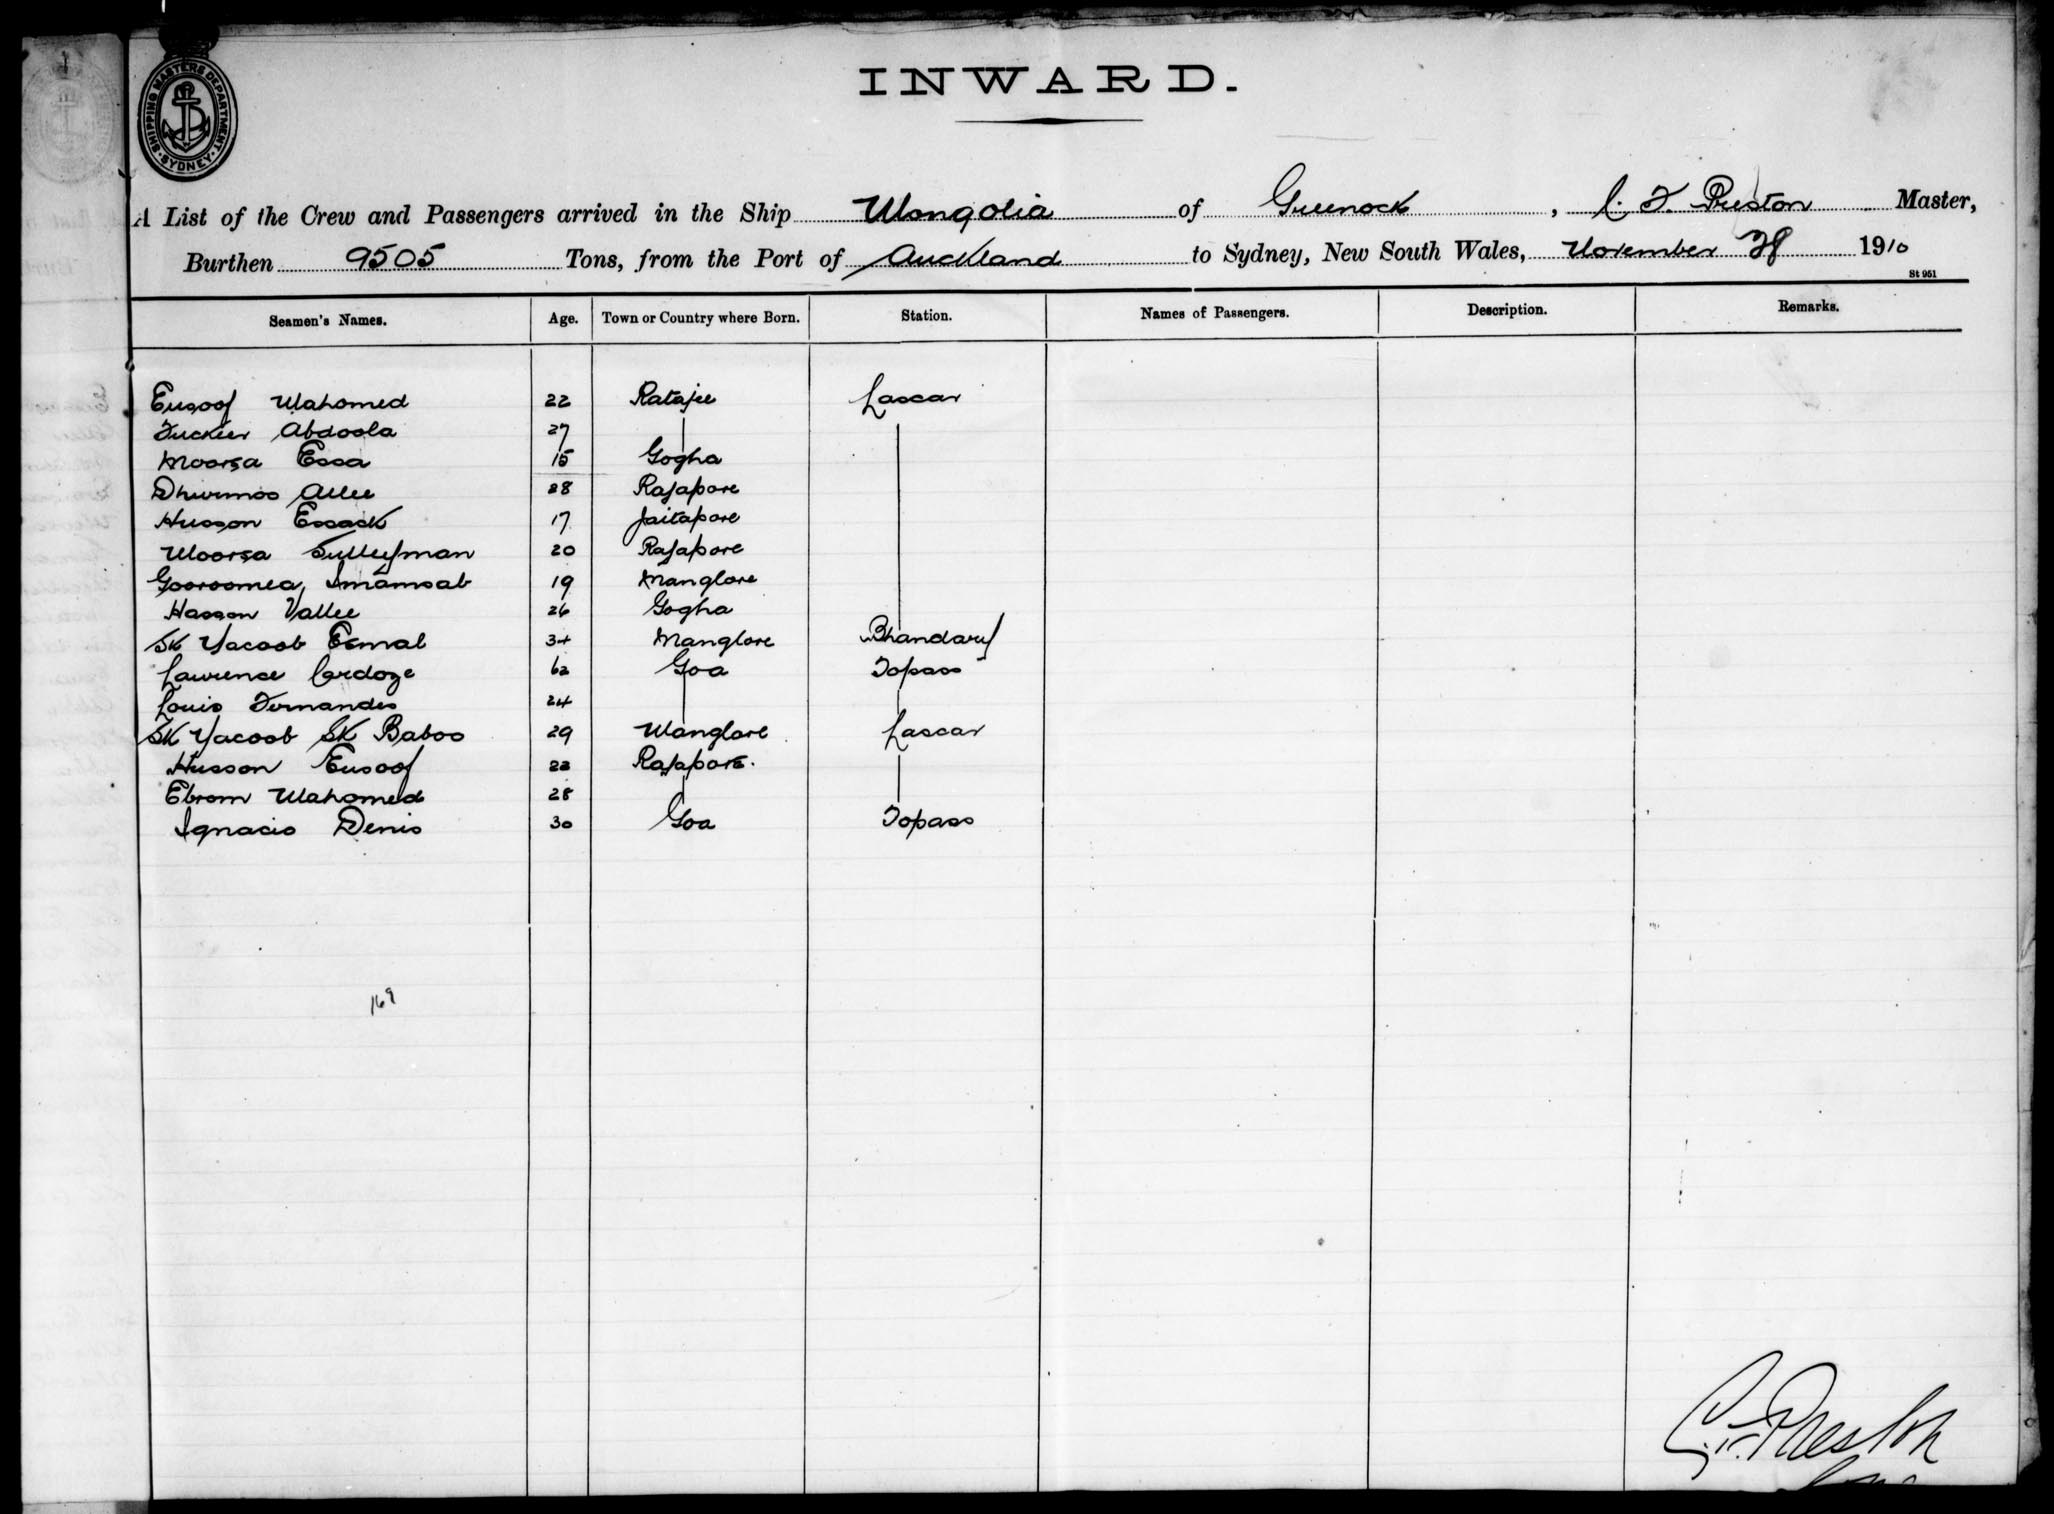 SHIPPING MASTERS DEPARTMENT · SYDNEY ·
INWARD.
A List of the Crew and Passengers arrived in the Ship Mongolia of Greenock, C. F. Preston Master,
Burthen 9505 Tons, from the Port of Auckland to Sydney, New South Wales, November 28 1910
St 951
Seamen's Names. Age. Town or Country where Born. Station. Names of Passengers. Description. Remarks.
Eusoof Mahomed 22 Ratajee Lascar
Fuckier Abdoola 27
Moorsa Essa 15 Gogha
Dhurmoo Allee 28 Rajapore
Husson Essack 17 Jaitapore
Moorsa Sulleyman 20 Rajapore
Gooroomea Imamsab 19 Manglore
Hasson Vallee 26 Gogha
SK Yacoob Esmal 34 Manglore Bhandary
Laurence Cardoze 62 Goa Topass
Louis Fernandes 24
SK Yacoob SK Baboo 29 Manglore Lascar
Husson Eusoof 22 Rajapore.
Ebrom Mahomed 28
Ignacio Denis 30 Goa Topass
169
C. F. Preston